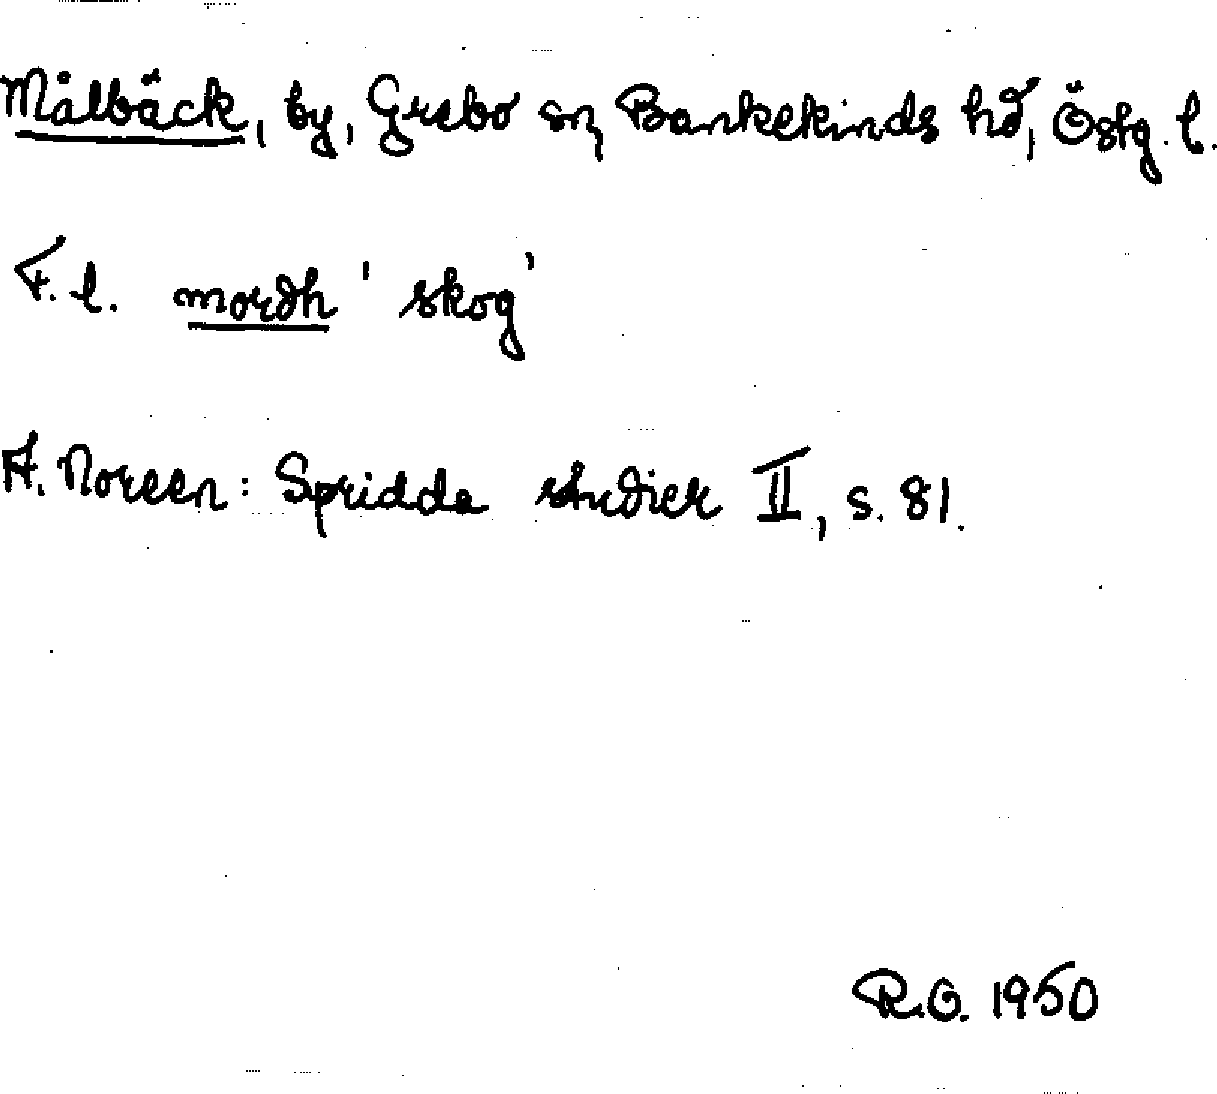 Målbäck, by, Grebo sn, Bankekinds hd, Östg. l.
F. l. mordh 'skog'
A. Noreen: Spridda studier II, s. 81.
R.O. 1950